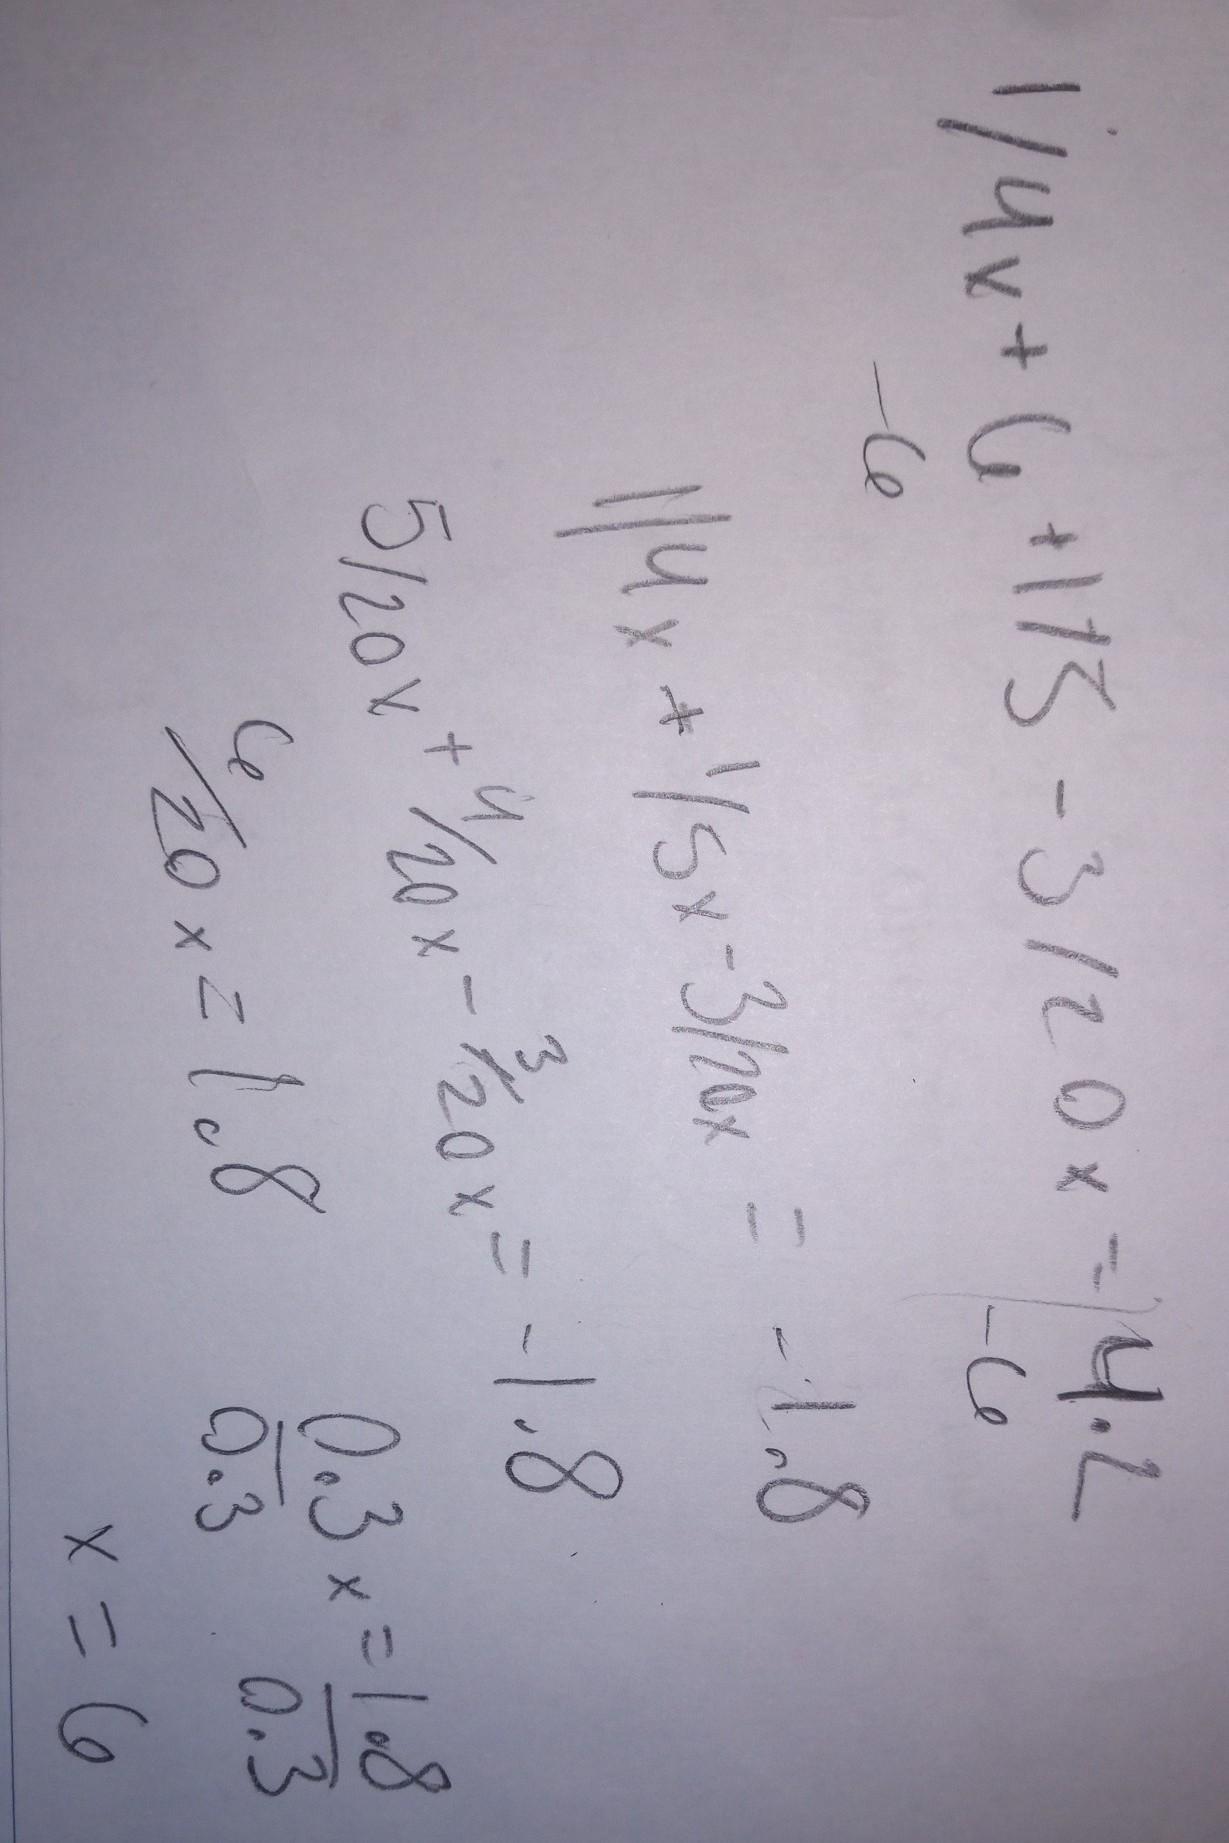 1/4x + 6 + 1/5 - 3/20x = 4.2
-6 -6
1/4x + 1/5x - 3/20x = -1.8
5/20x + 4/20x - 3/20x = -1.8
6/20x = 1.8
0.3x = 1.8
0.3 0.3
x = 6